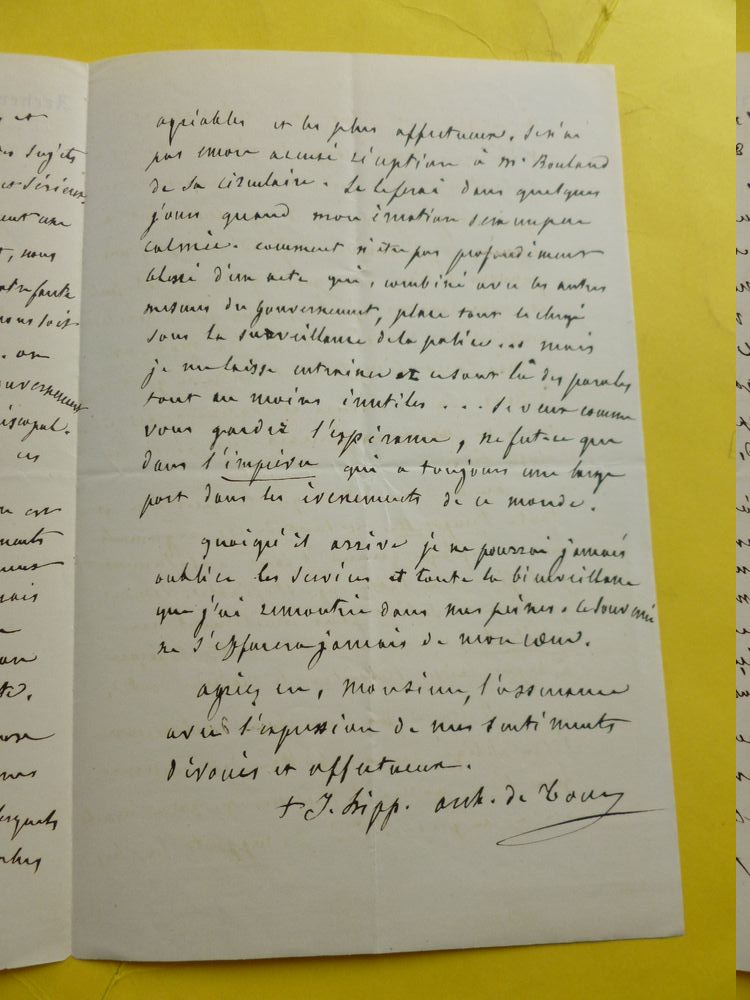 et
sujets
sérieux
une
, nous
faute
nous soit
. on
gouvernement
épiscopal.
ces
est
mais
te.
nos
lesquels
plus
agréables et les plus affectueux. Je n'ai
pas encore accusé réception à Mr Rouland
de sa circulaire. Je le ferai dans quelques
jours quand mon émotion sera un peu
calmée. comment n'être pas profondément
blessé d'un acte qui, combiné avec les autres
mesures du gouvernement, place tout le clergé
sous la surveillance de la police... mais
je me laisse entrainer et ce sont là des paroles
tout au moins inutiles ... Je veux comme
vous garder l'espérance, ne fut-ce que
dans l'imprévu qui a toujours une large
part dans les évènements de ce monde.
quoiqu'il arrive je ne pourrai jamais
oublier les services et toute la bienveillance
que j'ai rencontrée dans mes peines. Le souvenir
ne s'effacera jamais de mon cœur.
agréez en, Monsieur, l'assurance
avec l'expression de mes sentiments
dévoués et affectueux.
+ J. Hipp. arch. de Tours